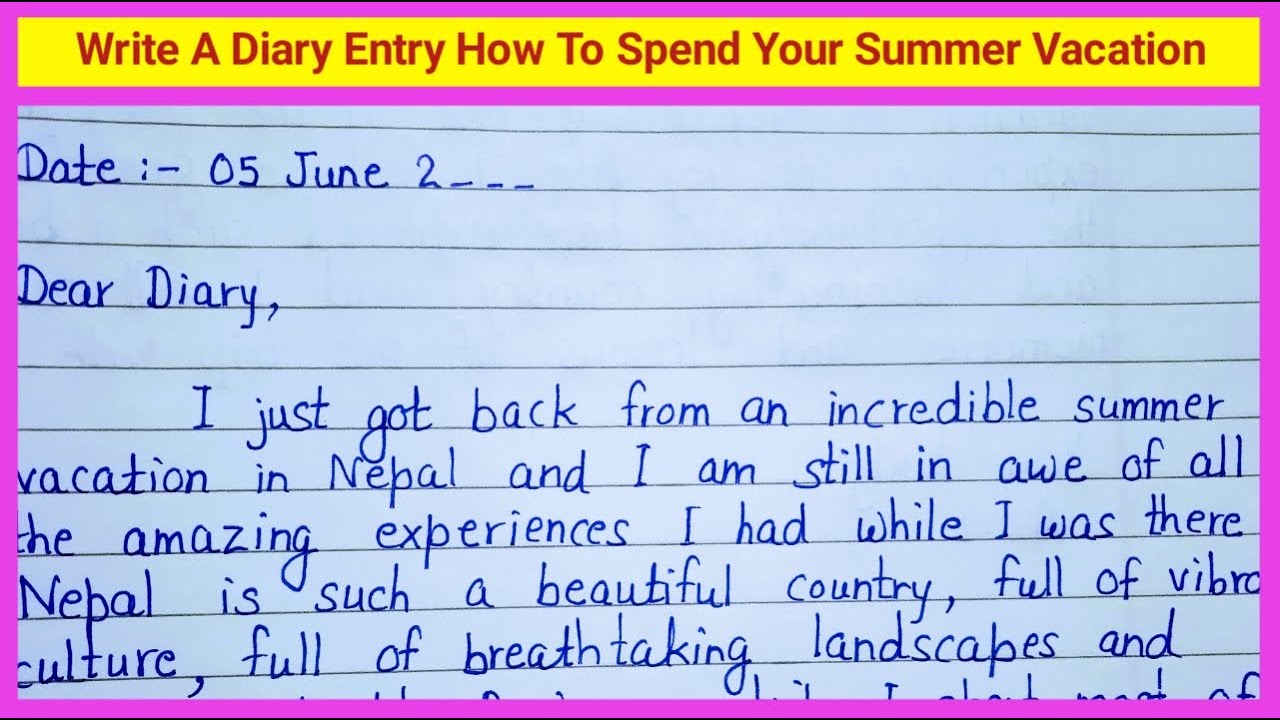 Write A Diary Entry How To Spend Your Summer Vacation
Date :- 05 June 2---
Dear Diary,
I just got back from an incredible summer
vacation in Nepal and I am still in awe of all
the amazing experiences I had while I was there
Nepal is such a beautiful country, full of vibra
culture, full of breathtaking landscapes and
I most of